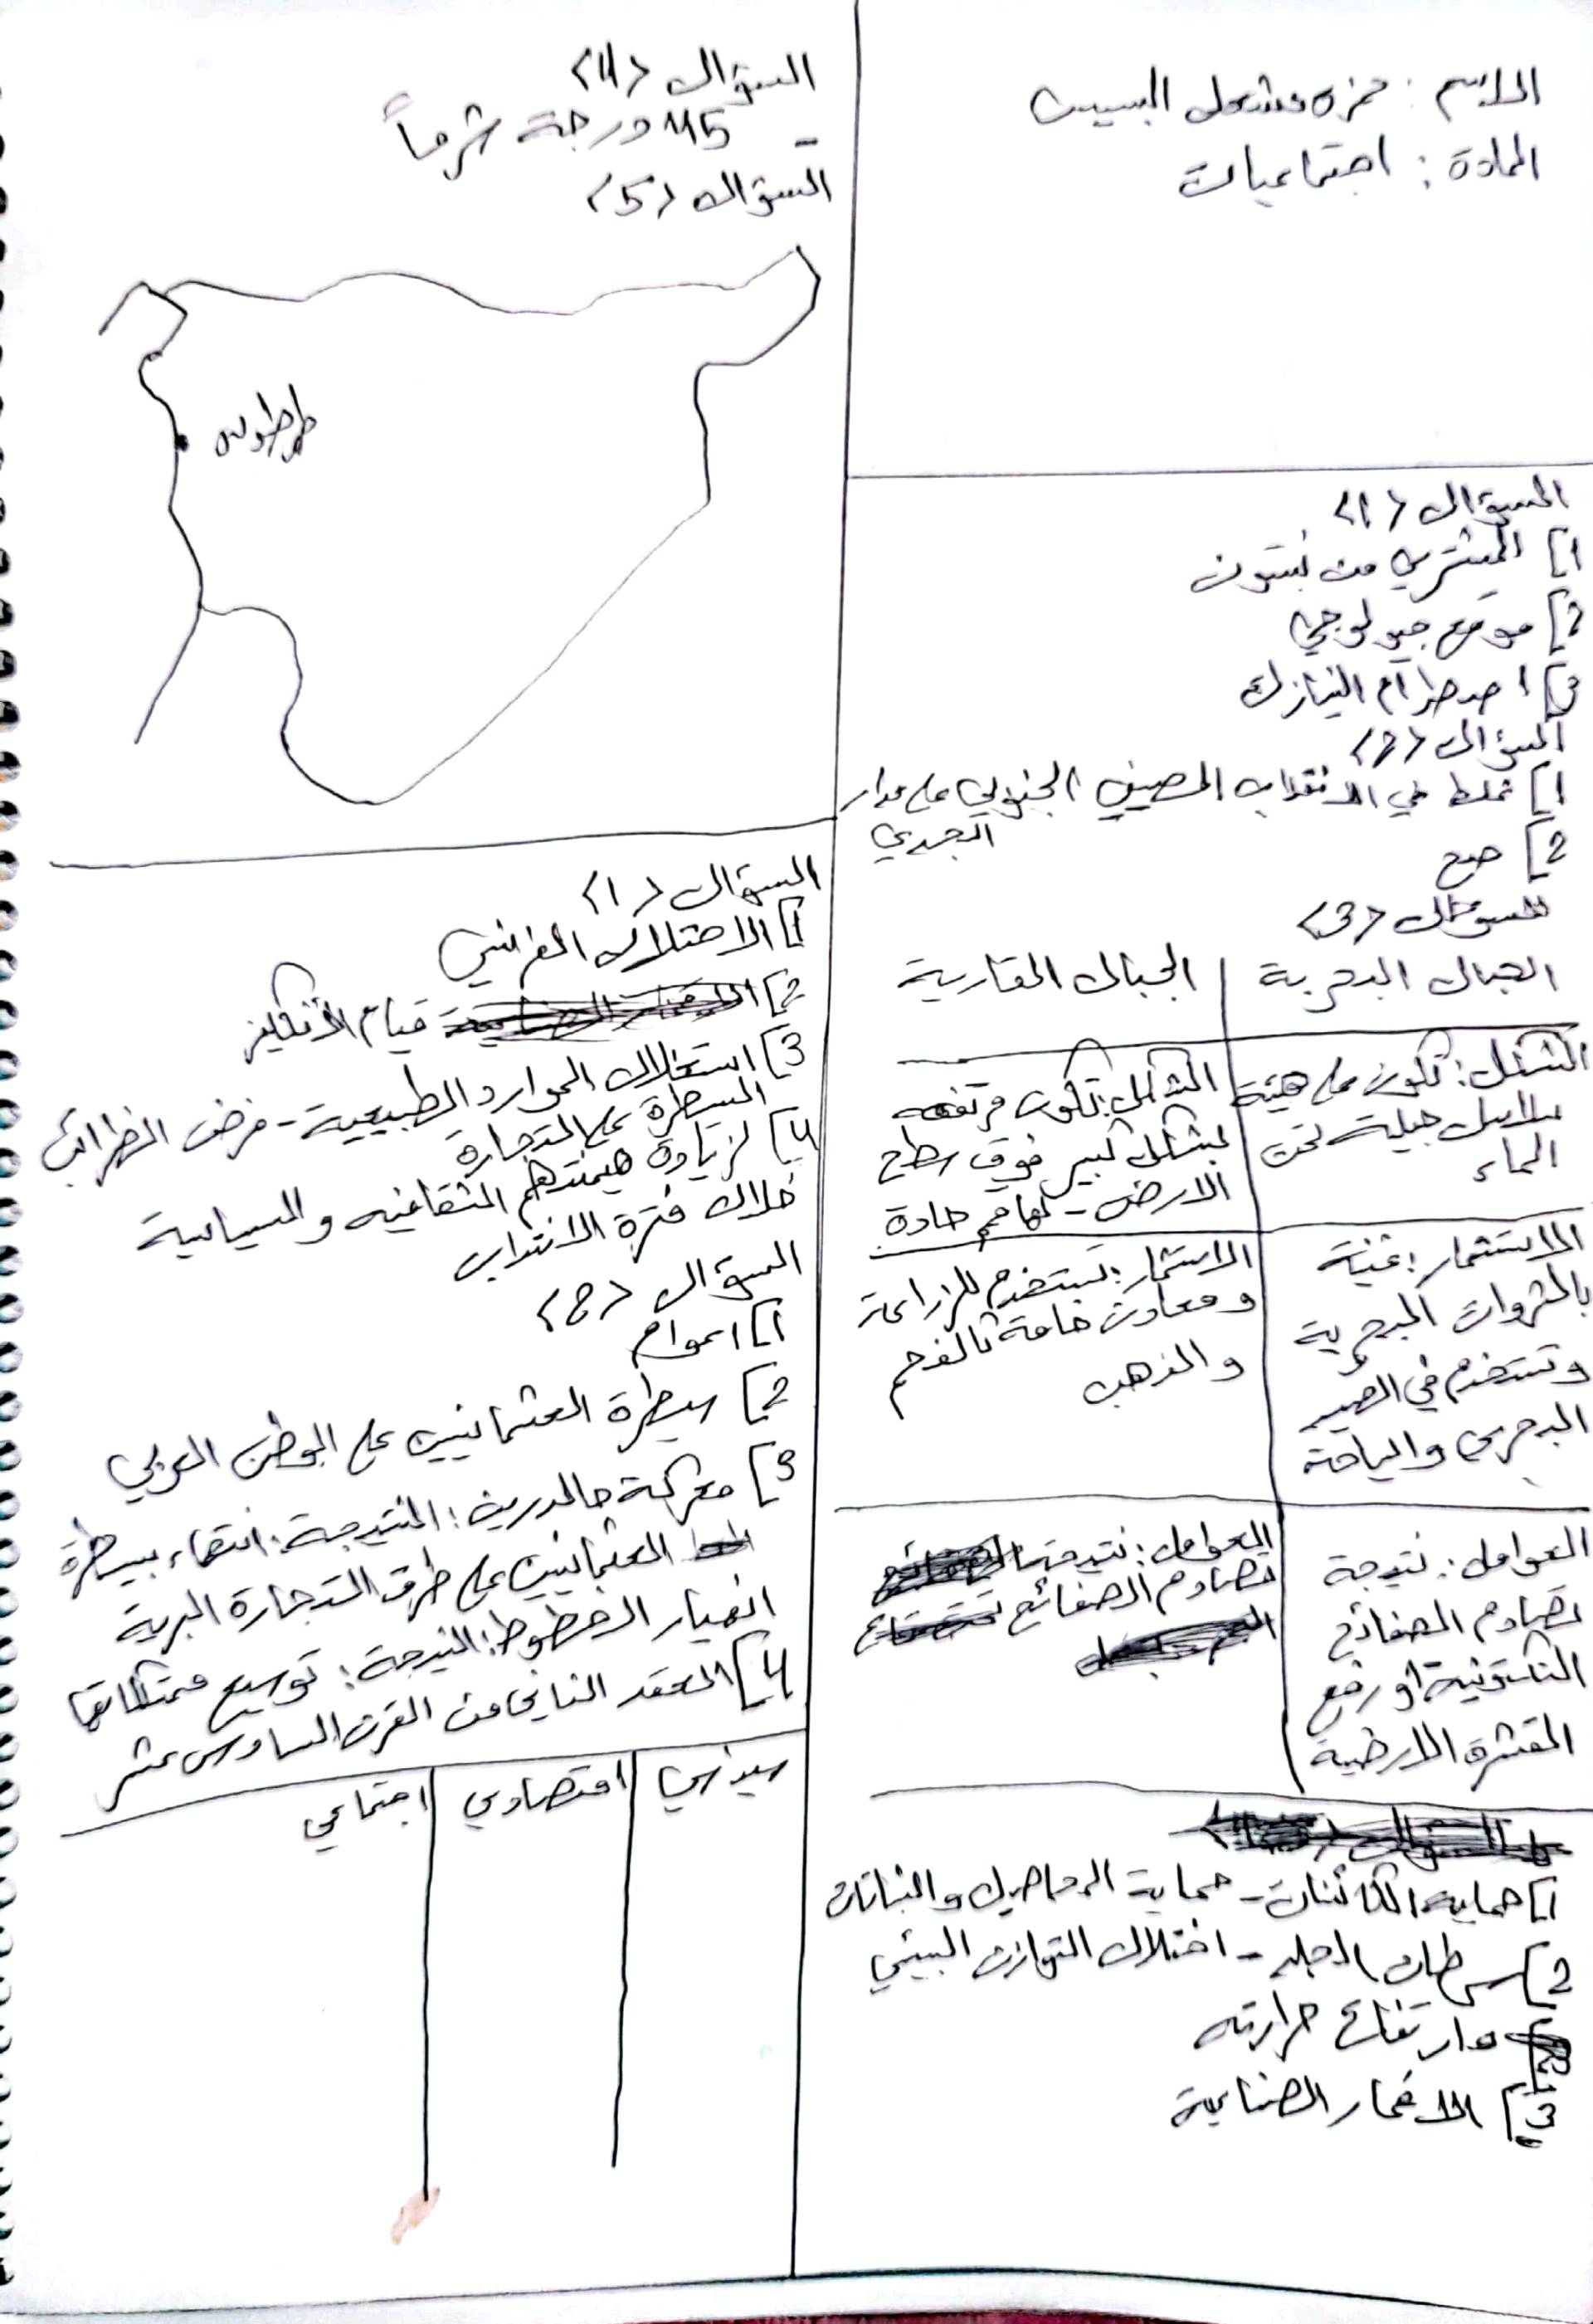 الاسم : حمزه مشعل السيس
المادة : اجتماعيات
السؤال <1>
1] المشتري من نبتون
2] موقع جيولوجي
3] اصطدام النيازك
السؤال <2>
1] غلط في الانقلاب الصيفي الجنوبي على مدار
الجدي
2] صح
السؤال <3>
الجبال البحرية
الجبال القارية
الشكل : تكون على هيئة
سلاسل جبلية تحت
الماء
الشكل : تكون مرتفعه
بشكل كبير فوق سطح
الارض - قمم حادة
الاستثمار : غنية
بالثروات البحرية
وتستخدم في الصيد
البحري والسياحة
الاستثمار : تستخدم للزراعة
و معادن خامة كالفحم
والذهب
العوامل : نتيجة
تصادم الصفائح
التكتونية او رفع
القشرة الارضية
العوامل : نتيجة
تصادم الصفائح
1] حماية الكائنات - حماية المحاصيل والنباتات
2] سرطان الجلد - اختلال التوازن البيئي
وارتفاع حرارته
3] الاقمار الصناعية
السؤال <4>
- 115 درجة شرقاً
السؤال <5>
طرطوس
السؤال <1>
1] الاحتلال الفرنسي
2] قيام الأنكليز
3] استغلال الموارد الطبيعية - فرض الضرائب
السيطرة على التجارة
4] لزيادة هيمنتهم الثقافيه والسياسية
خلال فترة الانتداب
السؤال <2>
1] اعوام
2] سيطرة العثمانيين على الوطن العربي
3] معركة جالديران : النتيجة : انتهاء بسيطرة
العثمانيين على طرق التجارة البرية
انهيار : النتيجة : توسيع ممتلكاتها
4] العقد الثاني من القرن السادس عشر
سياسي | اقتصادي | اجتماعي